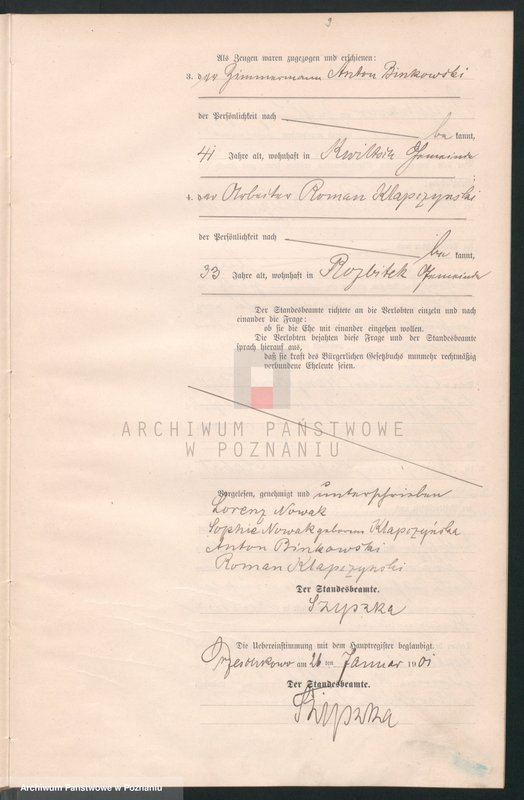 3
Als Zeugen waren zugezogen und erschienen:
3. der Zimmermann Anton Binkowski
der Persönlichkeit nach be kannt,
41 Jahre alt, wohnhaft in Kwiltsch Gemeinde
4. der Arbeiter Roman Klapczynski
der Persönlichkeit nach be kannt,
33 Jahre alt, wohnhaft in Rozbitek Gemeinde
Der Standesbeamte richtete an die Verlobten einzeln und nach
einander die Frage:
ob sie die Ehe mit einander eingehen wollen.
Die Verlobten bejahten diese Frage und der Standesbeamte
sprach hierauf aus,
daß sie kraft des Bürgerlichen Gesetzbuchs nunmehr rechtmäßig
verbundene Eheleute seien.
ARCHIWUM PAŃSTWOWE
W POZNANIU
Vorgelesen, genehmigt und unterschrieben
Lorenz Nowak
Sophie Nowak geborene Kłapczyńska
Anton Binkowski
Roman Kłapczynski
Der Standesbeamte.
Szyszka
Die Uebereinstimmung mit dem Hauptregister beglaubigt.
am 26 ten Januar 1901
Der Standesbeamte.
Szyszka
Archiwum Państwowe w Poznaniu